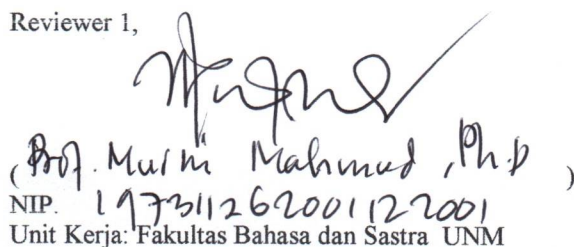 Reviewer 1,
(Prof. Murni Mahmud, Ph.D)
NIP. 197311262001122001
Unit Kerja: Fakultas Bahasa dan Sastra UNM